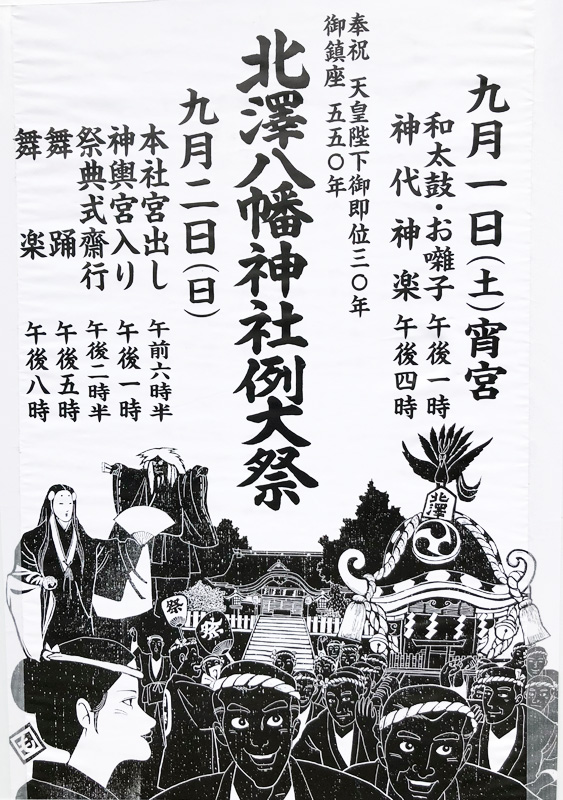 九月一日(土)宵宮
和太鼓・お囃子 午後一時
神代神楽 午後四時
奉祝 天皇陛下御即位三〇年
御鎮座 五五〇年
北澤八幡神社例大祭
九月二日(日)
本社宮出し 午前六時半
神輿宮入り 午後一時
祭典式齋行 午後二時半
舞踊 午後五時
舞楽 午後八時
北澤
祭
祭